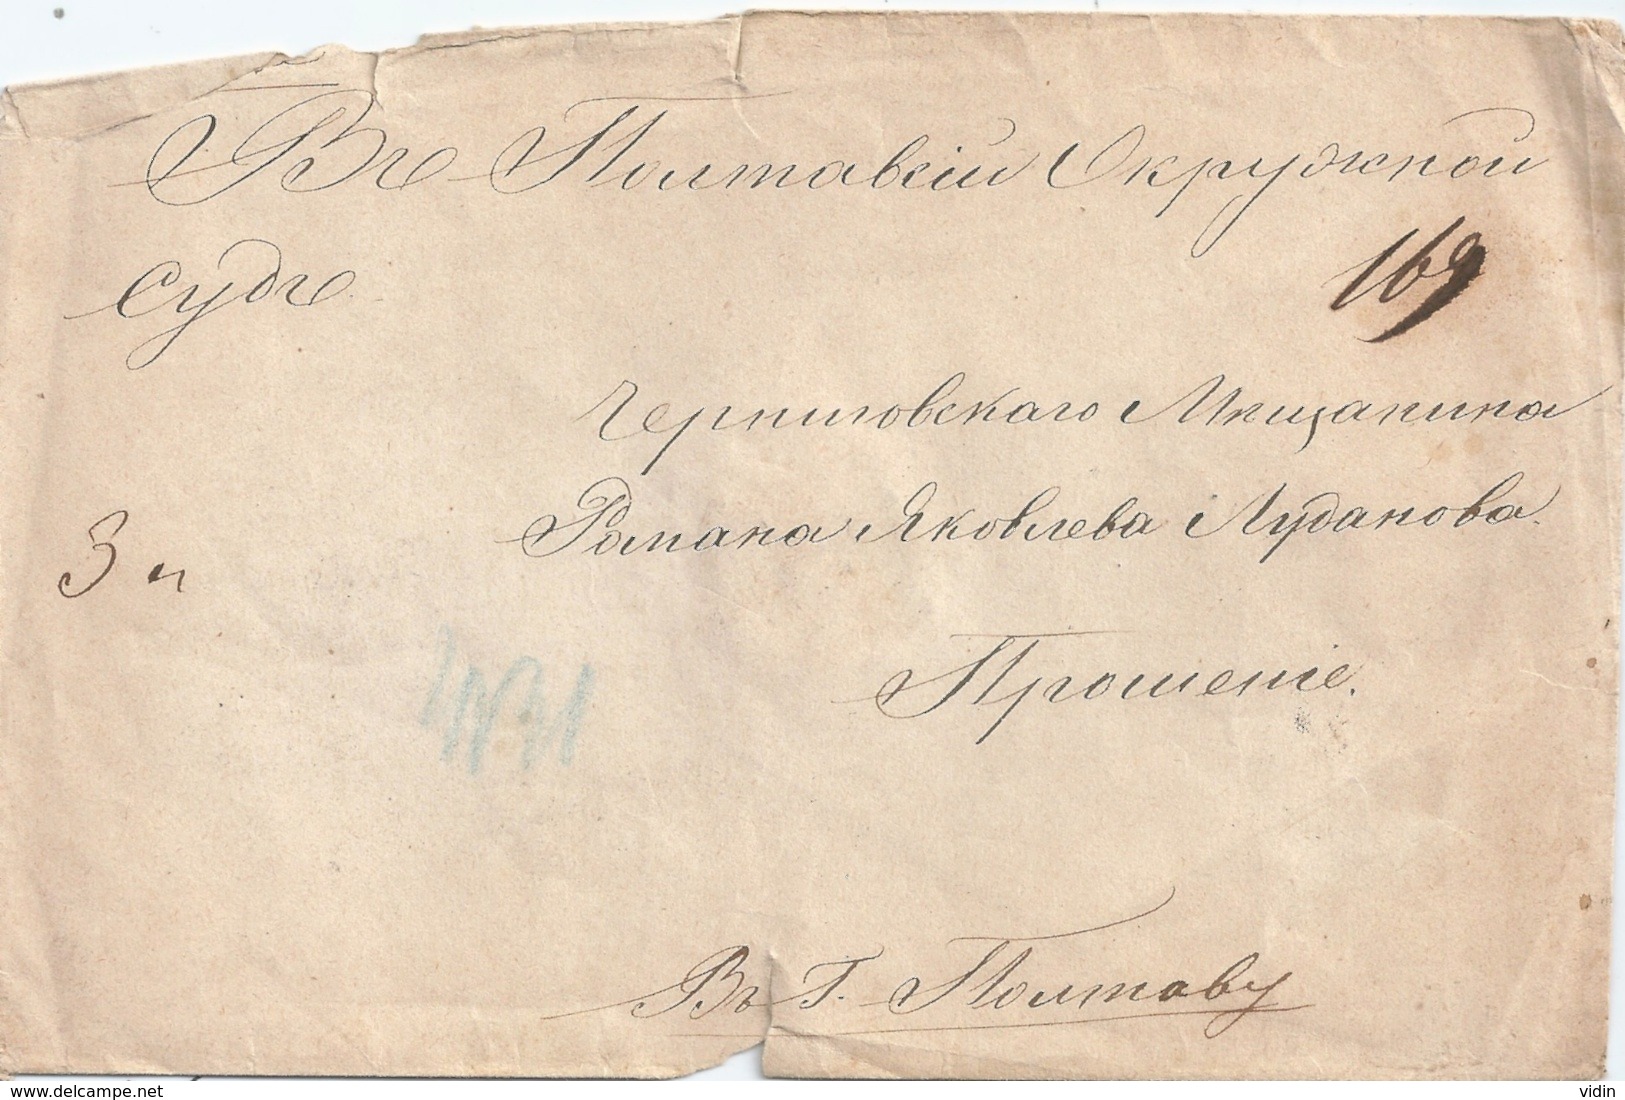 Въ Полтавскій Окружной
169
судъ
Черниговскаго Мѣщанина
Романа Яковлева Луданова.
3 п
Прошеніе.
Въ г. Полтаву
www.delcampe.net
vidin